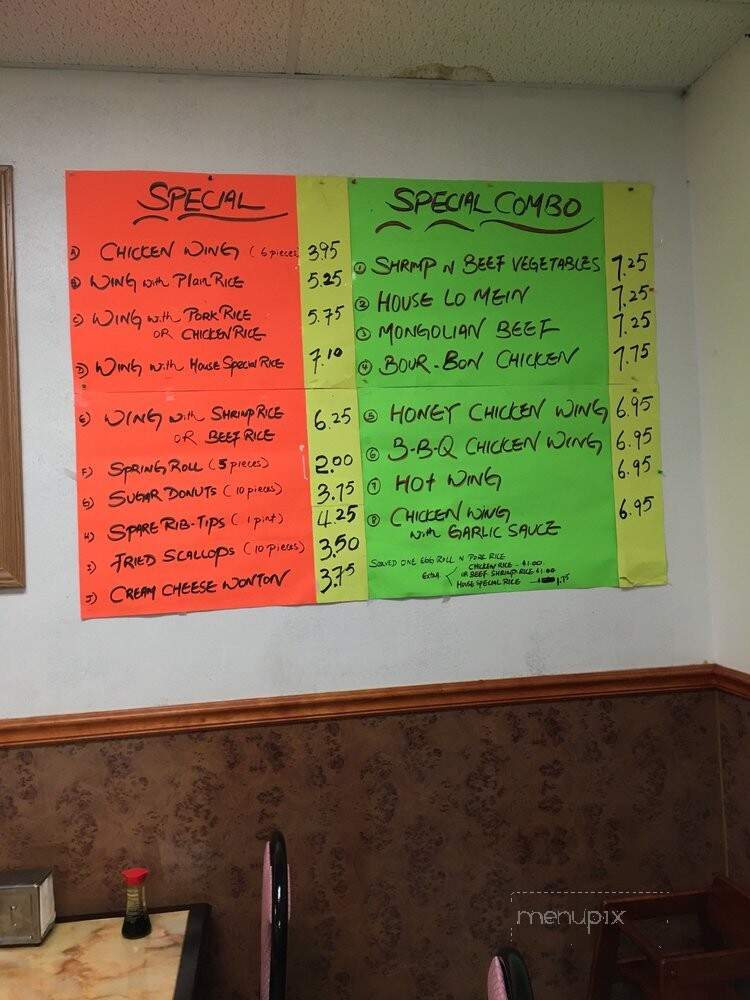 SPECIAL
A) CHICKEN WING (6 pieces) 3.95
B) WING with PLAIN RICE 5.25
C) WING with PORK RICE 5.75
OR CHICKEN RICE
D) WING with HOUSE SPECIAL RICE 7.10
E) WING with SHRIMP RICE 6.25
OR BEEF RICE
F) SPRING ROLL (5 pieces) 2.00
G) SUGAR DONUTS (10 pieces) 3.75
H) SPARE RIB-TIPS (1 pint) 4.25
I) FRIED SCALLOPS (10 pieces) 3.50
J) CREAM CHEESE WONTON 3.75
SPECIAL COMBO
1 SHRIMP N BEEF VEGETABLES 7.25
2 HOUSE LO MEIN 7.25
3 MONGOLIAN BEEF 7.25
4 BOUR-BON CHICKEN 7.75
5 HONEY CHICKEN WING 6.95
6 B-B-Q CHICKEN WING 6.95
7 HOT WING 6.95
8 CHICKEN WING 6.95
with GARLIC SAUCE
SERVED ONE EGG ROLL N PORK RICE
CHICKEN RICE - $1.00
EXTRA OR BEEF SHRIMP RICE $1.00
HOUSE SPECIAL RICE 1.75
menupix